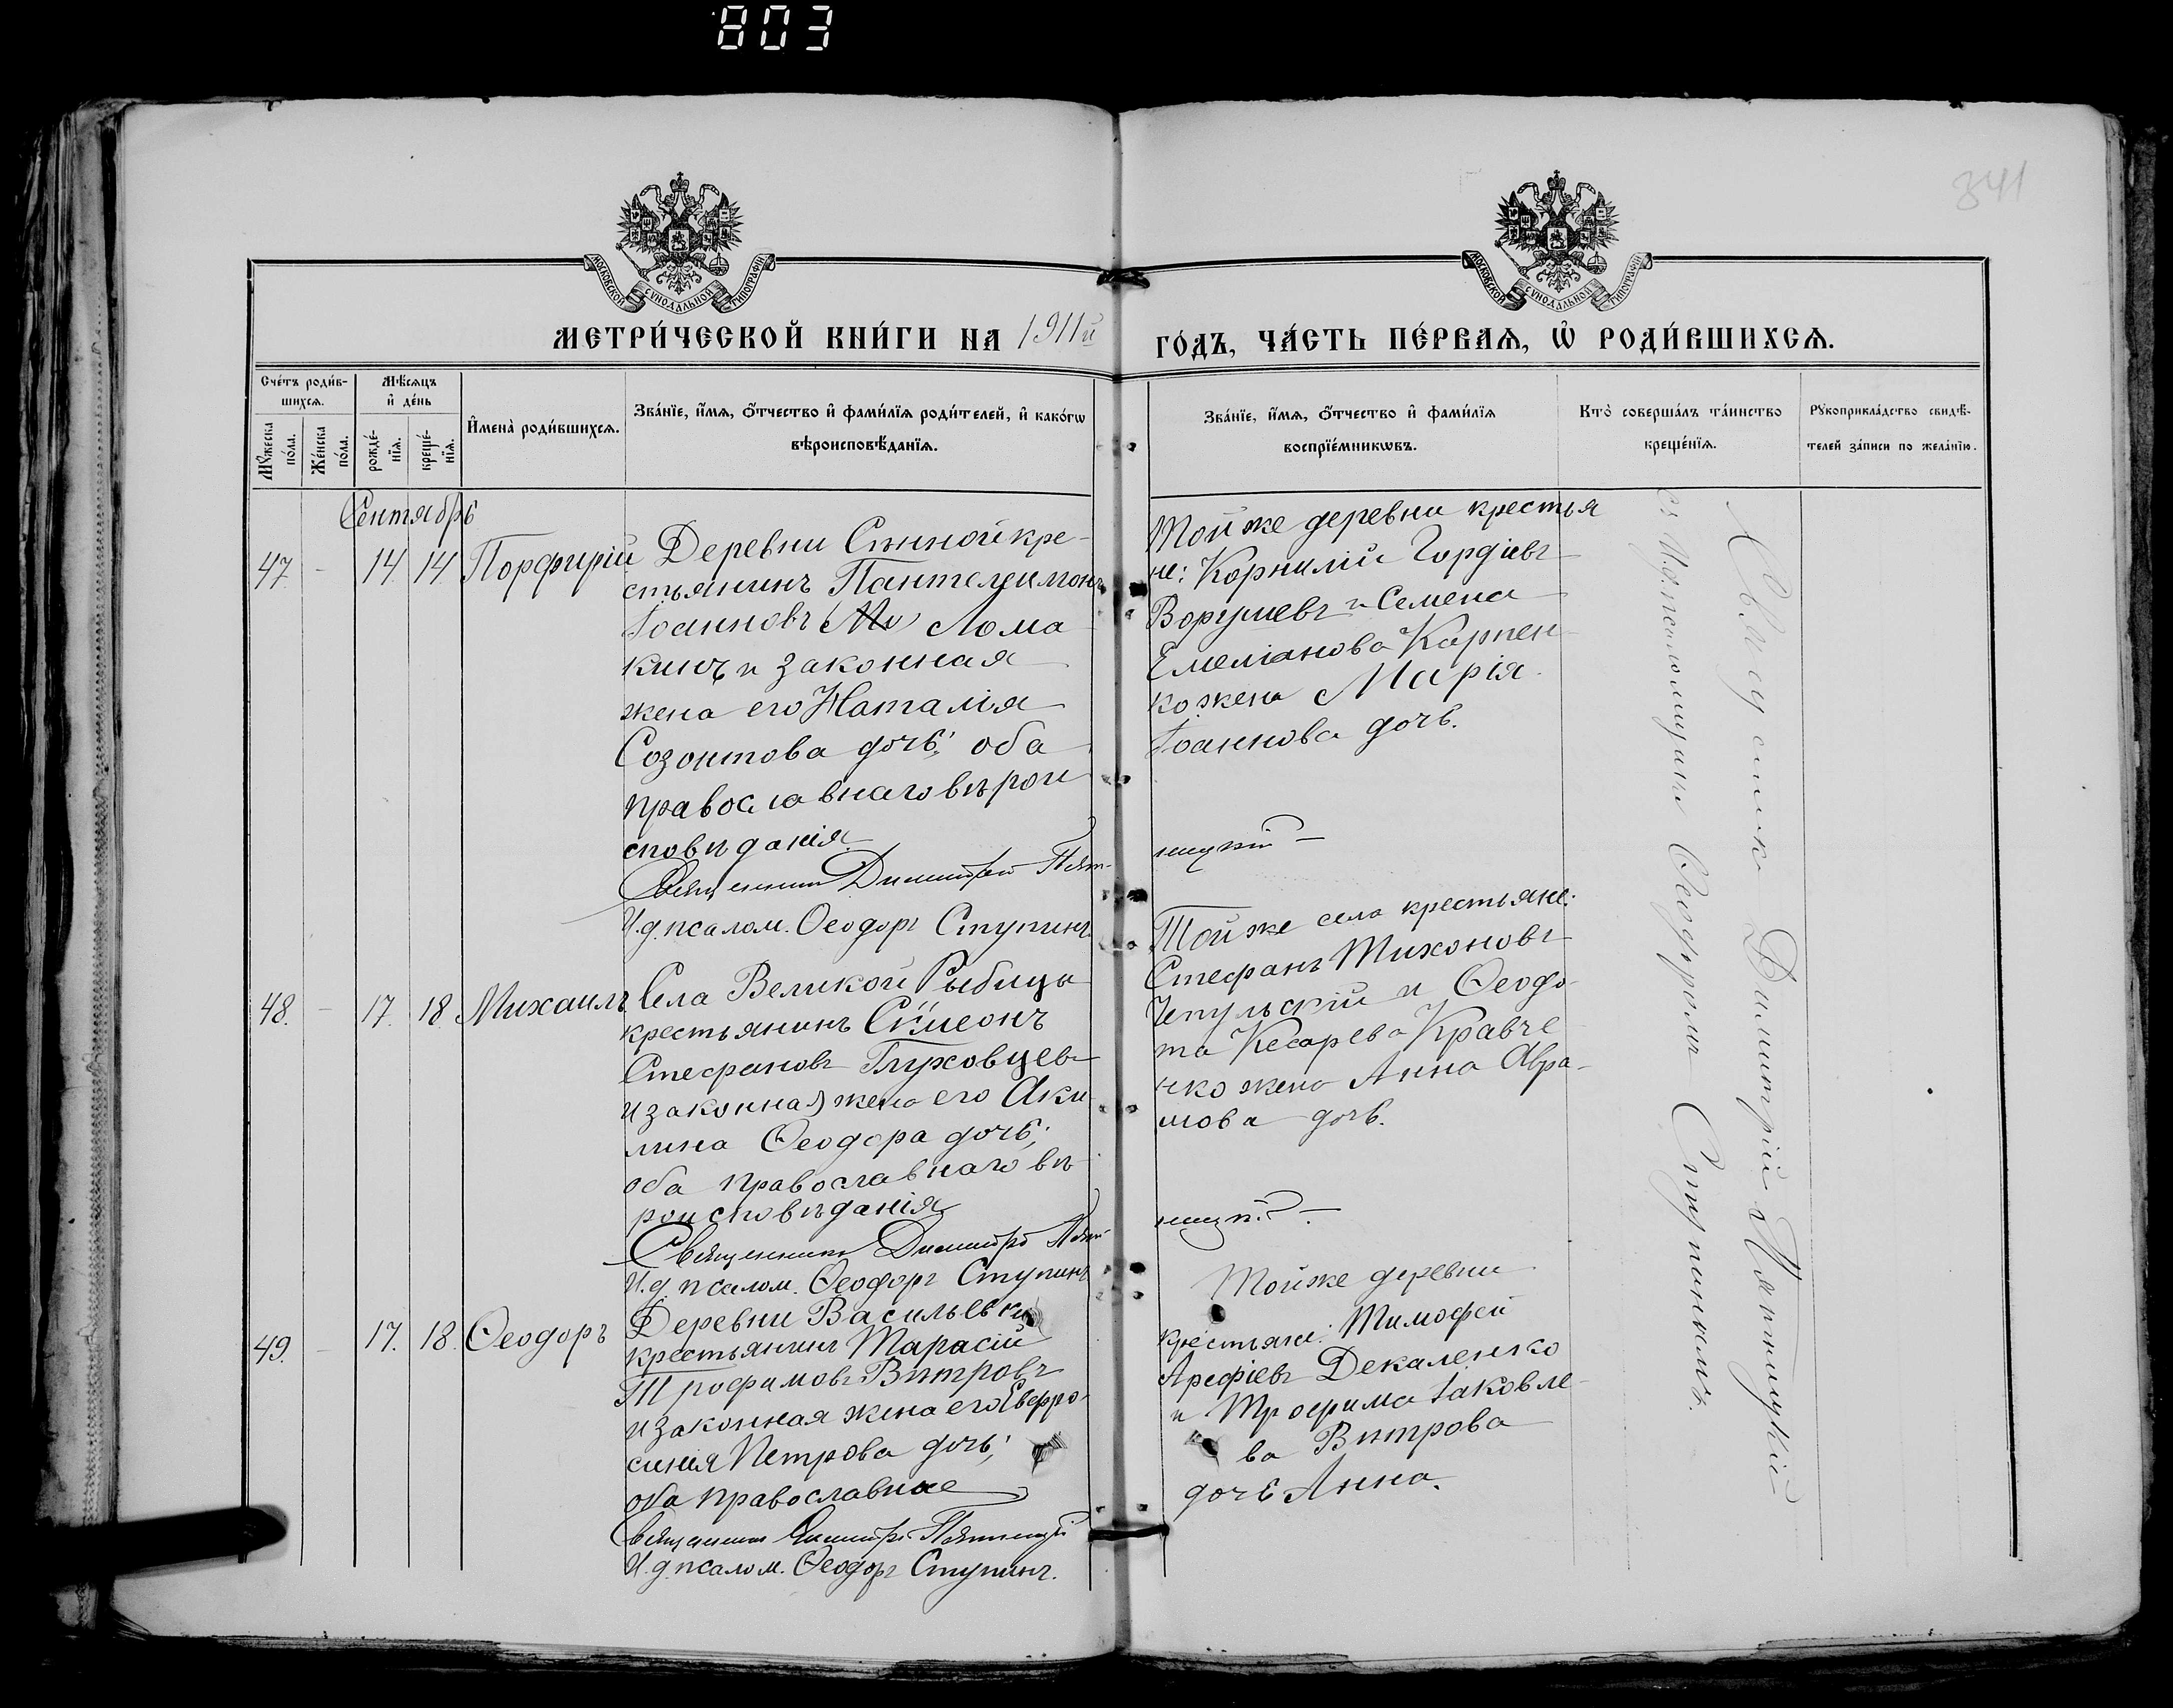 803
341
МОСКОВСКОЙ СУНОДАЛЬНОЙ ТИПОГРАФІИ
МОСКОВСКОЙ СУНОДАЛЬНОЙ ТИПОГРАФІИ
МЕТРИ́ЧЕСКОЙ КНИ́ГИ НА 1911й
ГО́ДЪ, ЧА́СТЬ ПЕ́РВАѦ, Ѡ҆ РОДИ́ВШИХСѦ.
Сче́тъ роди́в-
шихсѧ.
Мꙋ́жеска по́ла.
Же́нска по́ла.
Мѣ́сѧцъ
и҆ де́нь
рожде́-
нїѧ.
креще́-
нїѧ.
И҆мена̀ роди́вшихсѧ.
Зва́нїе, и҆́мѧ, ѻ҆́тчество и҆ фами́лїѧ роди́телей, и҆ како́гѡ
вѣроисповѣ́данїѧ.
Зва́нїе, и҆́мѧ, ѻ҆́тчество и҆ фами́лїѧ
воспрїе́мникѡвъ.
Кто̀ соверша́лъ та́инство
креще́нїѧ.
Рꙋкоприкла́дство свидѣ́-
телей за́писи по жела́нїю.
Сентябрь
47. - 14. 14. Порфирій
Деревни Сѣнной кре-
стьянинъ Пантелеимонъ
Іоанновъ Лома
кинъ и законная
жена его Наталія
Созонтова дочь; оба
православнаго вѣрои
сповѣданія.
Священникъ Димитрій Пят-
И.д. псалом. Ѳеодоръ Ступинъ
Той же деревни крестья
не: Корнилій Гордіевъ
Ворушевъ и Семена
Емеліанова Карпен
ко жена Марія
Іоаннова дочь.
ницкій
48. - 17. 18. Михаилъ
Села Великой Рыбицы
крестьянинъ Сѵмеонъ
Стефановъ Глуховцевъ
и законная жена его Аки
лина Ѳеодора дочь;
оба православнаго вѣ-
роисповѣданія
Священникъ Димитрій Пят-
И.д. псалом. Ѳеодоръ Ступинъ
Той же села крестьяне:
Стефанъ Тихоновъ
Чепульскій и Ѳеодо-
та Кесарева Кравче
нко жена Анна Авра-
мова дочь.
ницкій
49. - 17. 18. Ѳеодоръ
Деревни Васильевки
крестьянинъ Тарасій
Трофимовъ Вѣтровъ
и законная жена его Евфро-
синія Петрова дочь;
оба православные
Священникъ Димитрій Пятницкій
И.д. псалом. Ѳеодоръ Ступинъ.
Той же деревни
крестьяне: Тимофей
Арефіевъ Декаленко
и Трофима Іаковле-
ва Вѣтрова
дочь Анна.
Священникъ Димитрій Пятницкій
съ И.д. псаломщика Ѳеодоромъ Ступинымъ.